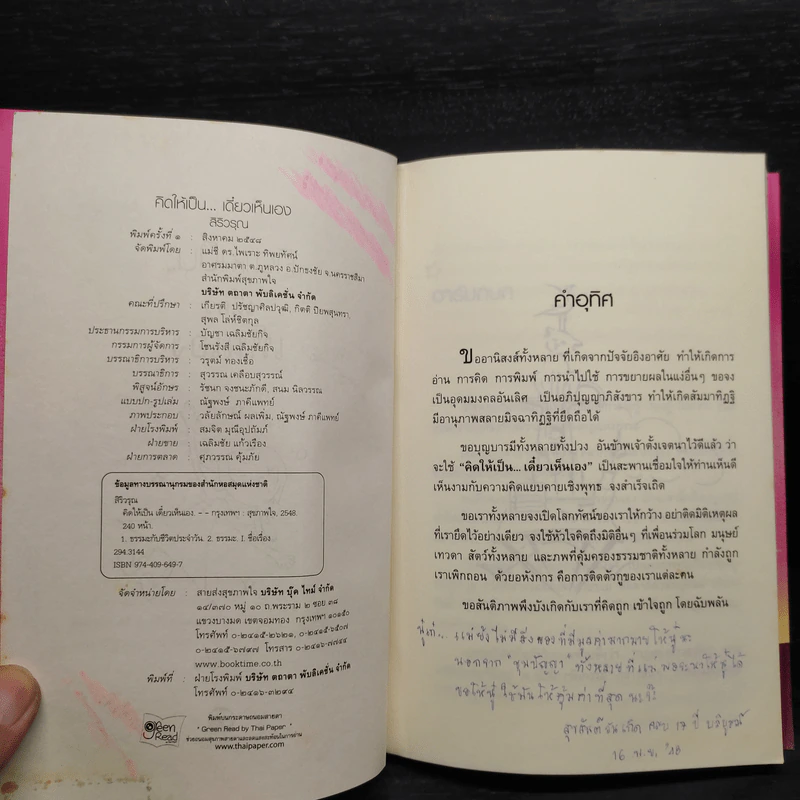 คิดให้เป็น... เดี๋ยวเห็นเอง
สิริวรุณ
พิมพ์ครั้งที่ ๑ : สิงหาคม ๒๕๔๘
จัดพิมพ์โดย : แม่ชี ดร.ไพเราะ ทิพยทัศน์
อาศรมมาตา ต.ภูหลวง อ.ปักธงชัย จ.นครราชสีมา
สำนักพิมพ์สุขภาพใจ
บริษัท ตถาตา พับลิเคชั่น จำกัด
คณะที่ปรึกษา : เกียรติ ปรัชญาศิลปวุฒิ, กิตติ ปิยพสุนทรา,
สุพล โล่ห์ชิตกุล
ประธานกรรมการบริหาร : บัญชา เฉลิมชัยกิจ
กรรมการผู้จัดการ : โชนรังสี เฉลิมชัยกิจ
บรรณาธิการบริหาร : วรุตม์ ทองเชื้อ
บรรณาธิการ : สุวรรณ เคลือบสุวรรณ์
พิสูจน์อักษร : รัชนก จงชนะภักดี, สนม นิลวรรณ
แบบปก-รูปเล่ม : ณัฐพงษ์ ภาคีแพทย์
ภาพประกอบ : วลัยลักษณ์ ผลเพิ่ม, ณัฐพงษ์ ภาคีแพทย์
ฝ่ายโรงพิมพ์ : สมจิต มุณีอุปถัมภ์
ฝ่ายขาย : เฉลิมชัย แก้วเรือง
ฝ่ายการตลาด : ศุภวรรณ คุ้มภัย
ข้อมูลทางบรรณานุกรมของสำนักหอสมุดแห่งชาติ
สิริวรุณ
คิดให้เป็น เดี๋ยวเห็นเอง. - - กรุงเทพฯ : สุขภาพใจ, 2548.
240 หน้า.
1. ธรรมะกับชีวิตประจำวัน. 2. ธรรมะ. I. ชื่อเรื่อง.
294.3144
ISBN 974-409-649-7
จัดจำหน่ายโดย : สายส่งสุขภาพใจ บริษัท บุ๊ค ไทม์ จำกัด
๑๔/๓๗๐ หมู่ ๑๐ ถ.พระราม ๒ ซอย ๓๘
แขวงบางมด เขตจอมทอง กรุงเทพฯ ๑๐๑๕๐
โทรศัพท์ ๐-๒๔๑๕-๒๖๒๑, ๐-๒๔๑๕-๖๕๐๗
๐-๒๔๑๕-๖๗๙๗ โทรสาร ๐-๒๔๑๖-๗๗๔๔
www.booktime.co.th
พิมพ์ที่ : ฝ่ายโรงพิมพ์ บริษัท ตถาตา พับลิเคชั่น จำกัด
โทรศัพท์ ๐-๒๔๑๖-๓๒๙๔
Green Read
พิมพ์บนกระดาษถนอมสายตา
" Green Read by Thai Paper "
ช่วยถนอมสุขภาพสายตาและลดแสงสะท้อนในการอ่าน
www.thaipaper.com
คำอุทิศ
ขออานิสงส์ทั้งหลาย ที่เกิดจากปัจจัยอิงอาศัย ทำให้เกิดการ
อ่าน การคิด การพิมพ์ การนำไปใช้ การขยายผลในแง่อื่นๆ ขอจง
เป็นอุดมมงคลอันเลิศ เป็นอภิปุญญาภิสังขาร ทำให้เกิดสัมมาทิฏฐิ
มีอานุภาพสลายมิจฉาทิฏฐิที่ยึดถือได้
ขอบุญบารมีทั้งหลายทั้งปวง อันข้าพเจ้าตั้งเจตนาไว้ดีแล้ว ว่า
จะใช้ "คิดให้เป็น... เดี๋ยวเห็นเอง" เป็นสะพานเชื่อมใจให้ท่านเห็นดี
เห็นงามกับความคิดแยบคายเชิงพุทธ จงสำเร็จเถิด
ขอเราทั้งหลายจงเปิดโลกทัศน์ของเราให้กว้าง อย่าติดมิติเหตุผล
ที่เรายึดไว้อย่างเดียว จงใช้หัวใจคิดถึงมิติอื่นๆ ที่เพื่อนร่วมโลก มนุษย์
เทวดา สัตว์ทั้งหลาย และภพที่คุ้มครองธรรมชาติทั้งหลาย กำลังถูก
เราเพิกถอน ด้วยอหังการ คือการติดตัวกูของเราแต่ละคน
ขอสันติภาพพึงบังเกิดกับเราที่คิดถูก เข้าใจถูก โดยฉับพลัน
แม่ซึ่งไม่มีสิ่งของที่มีมูลค่ามากมายให้
นอกจาก "ขุมปัญญา" ทั้งหลายที่แม่พอจะหาให้ ได้
ขอให้ ใช้มันให้คุ้มค่าที่สุด นะจ๊ะ
สุขสันต์วันเกิด ครบ 17 ปี บริบูรณ์
16 พ.ย. '48